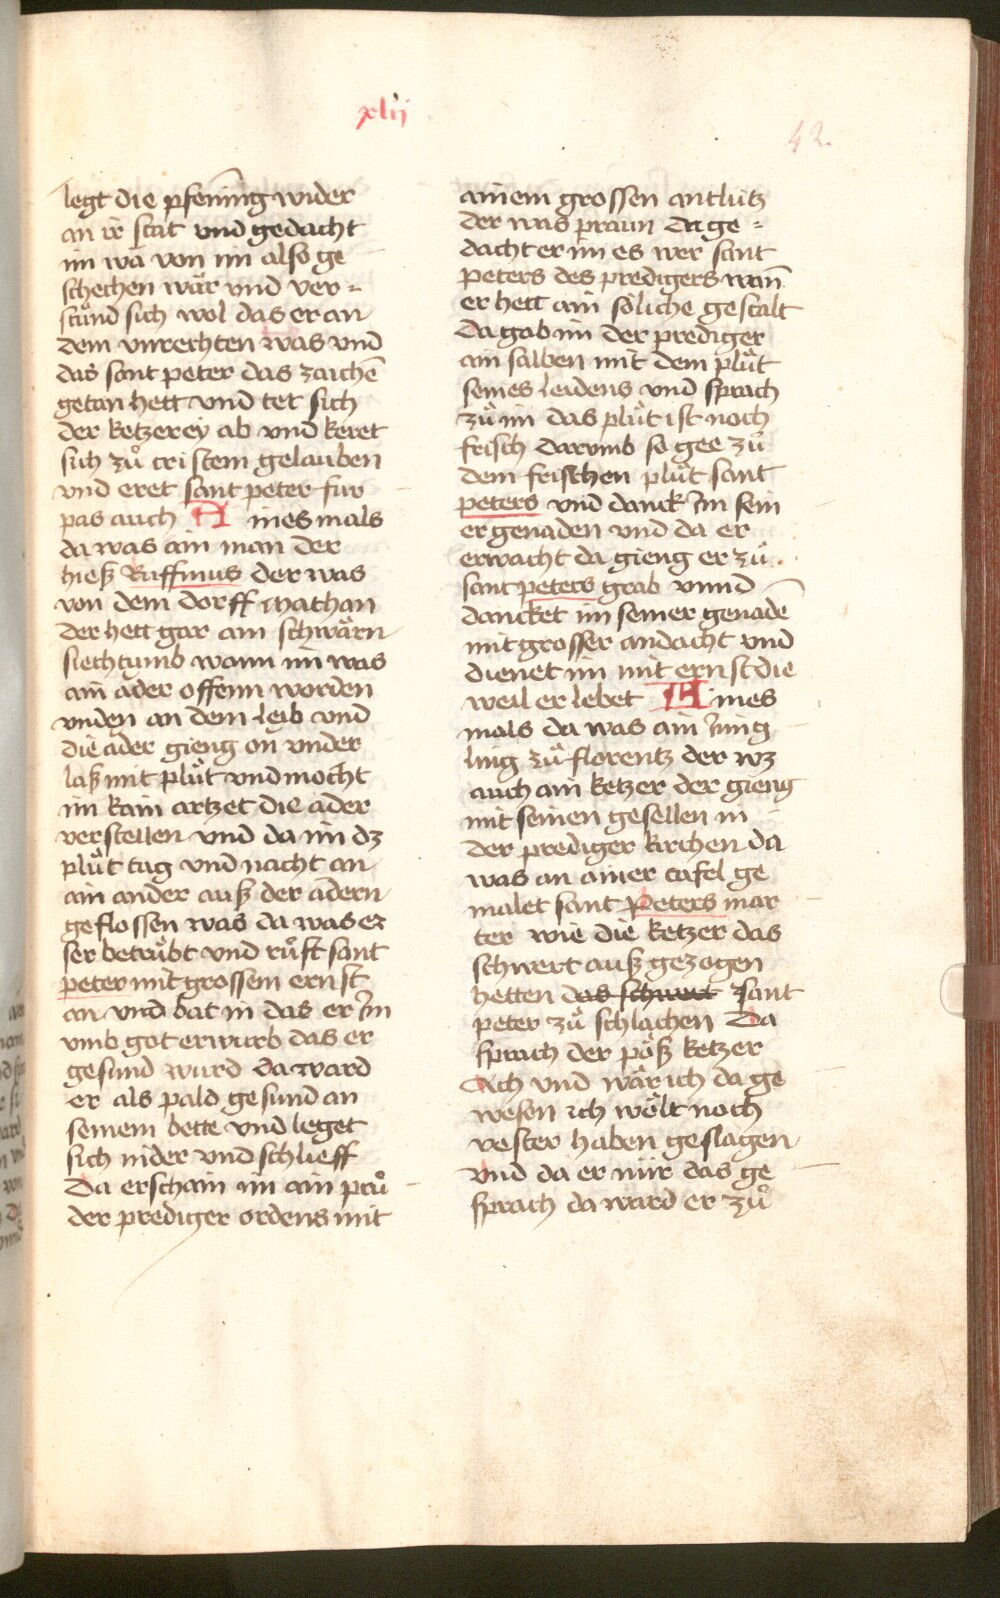 xlij
42.
legt die pfenīng wider
an ir stat vnd gedacht
im wa von im also ge
schechen wär vnd ver⸗
stůnd sich wol das er an
dem vnrechten was vnd
das sant peter das zaichē
getan hett vnd tet sich
der ketzerey ab vnd keret
sich zů cristem gelauben
vnd eret sant peter fur
pas auch Ainesmals
da was ain man der
hieß Ruffinus der was
von dem dorff Mathan
der hett gar ain schwärn
siechtumb wann im was
ain ader offenn worden
vnden an dem leib vnd
die ader gieng on vnder
laß mit plůt vnd mocht
im kain artzet die ader
verstellen vnd da im dz
plůt tag vnd nacht an
ain ander auß der adern
geflossen was da was er
ser betrůbt vnd růft sant
peter mit grossem ernst
an vnd bat in das er im
vmb got erwurb das er
gesund wurd da ward
er als pald gesund an
seinem bette vnd leget
sich nider vnd schlieff
Da erschain im ain prů
der prediger ordens mit
ainem grossen antlutz
der was praun da ge⸗
dacht er im es wer sant
peters des predigers wañ
er hett ain söliche gestalt
da gab im der prediger
ain salben mit dem plůt
seines leidens vnd sprach
zů im das plůt ist noch
frisch darvmb so gee zů
dem frischen plůt sant
peters vnd danck im sein
er genaden vnd da er
erwacht da gieng er zů
sant peters grab vnnd
dancket im seiner genadē
mit grosser andacht vnd
dienet im mit ernst die
weil er lebet Aines
mals da was ain iüng
ling zů florentz der wz
auch ain ketzer der gieng
mit seinen gesellen in
der prediger kirchen da
was an ainer tafel ge
malet sant Peters mar
ter wie die ketzer das
schwert auß gezogen
hetten das schwert sant
peter zů schlachen Da
sprach der pöß ketzer
Ach vnd wär ich da ge
wesen ich wölt noch
vester haben geslagen
vnd da er nür das ge
sprach da ward er zů